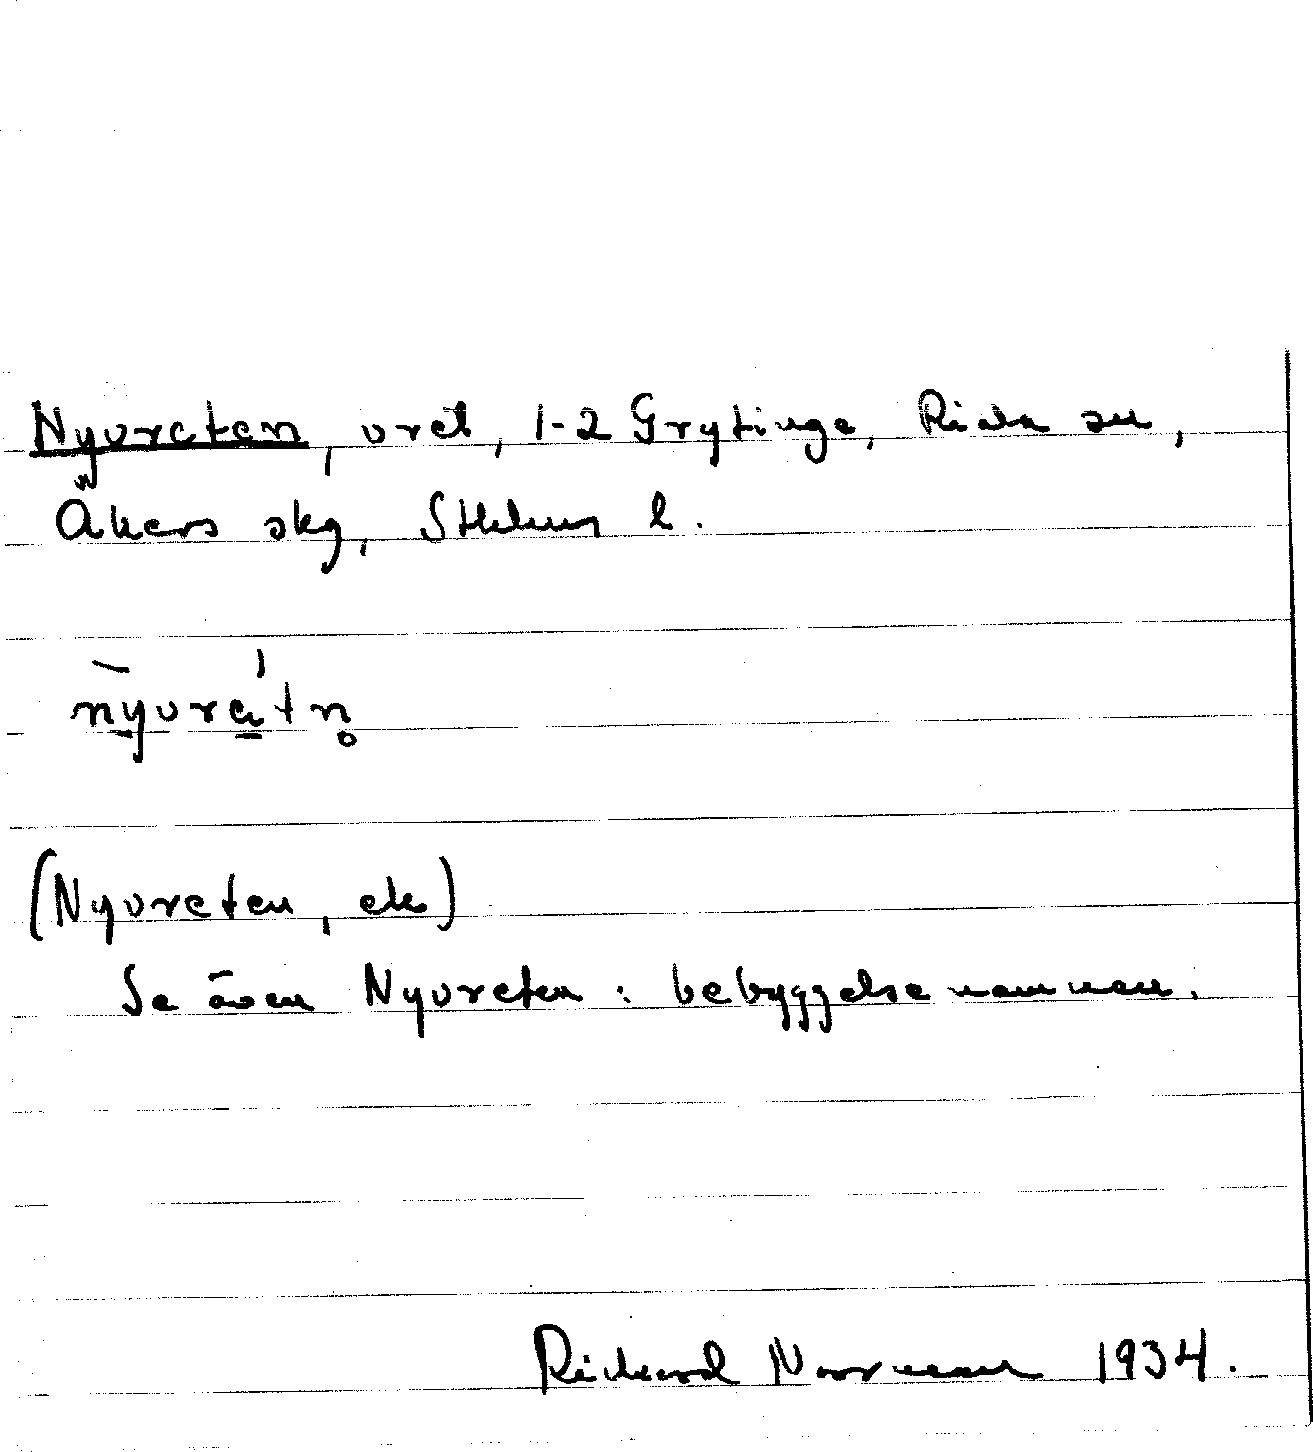 Nyvreten, vret, 1-2 Grytinge, Riala sn,
Åkers skg, Sthlms l.
nyvretn̥
(Nyvreten, ek)
Se även Nyvreten : bebyggelsenamnen.
Rickard Norrman 1934.